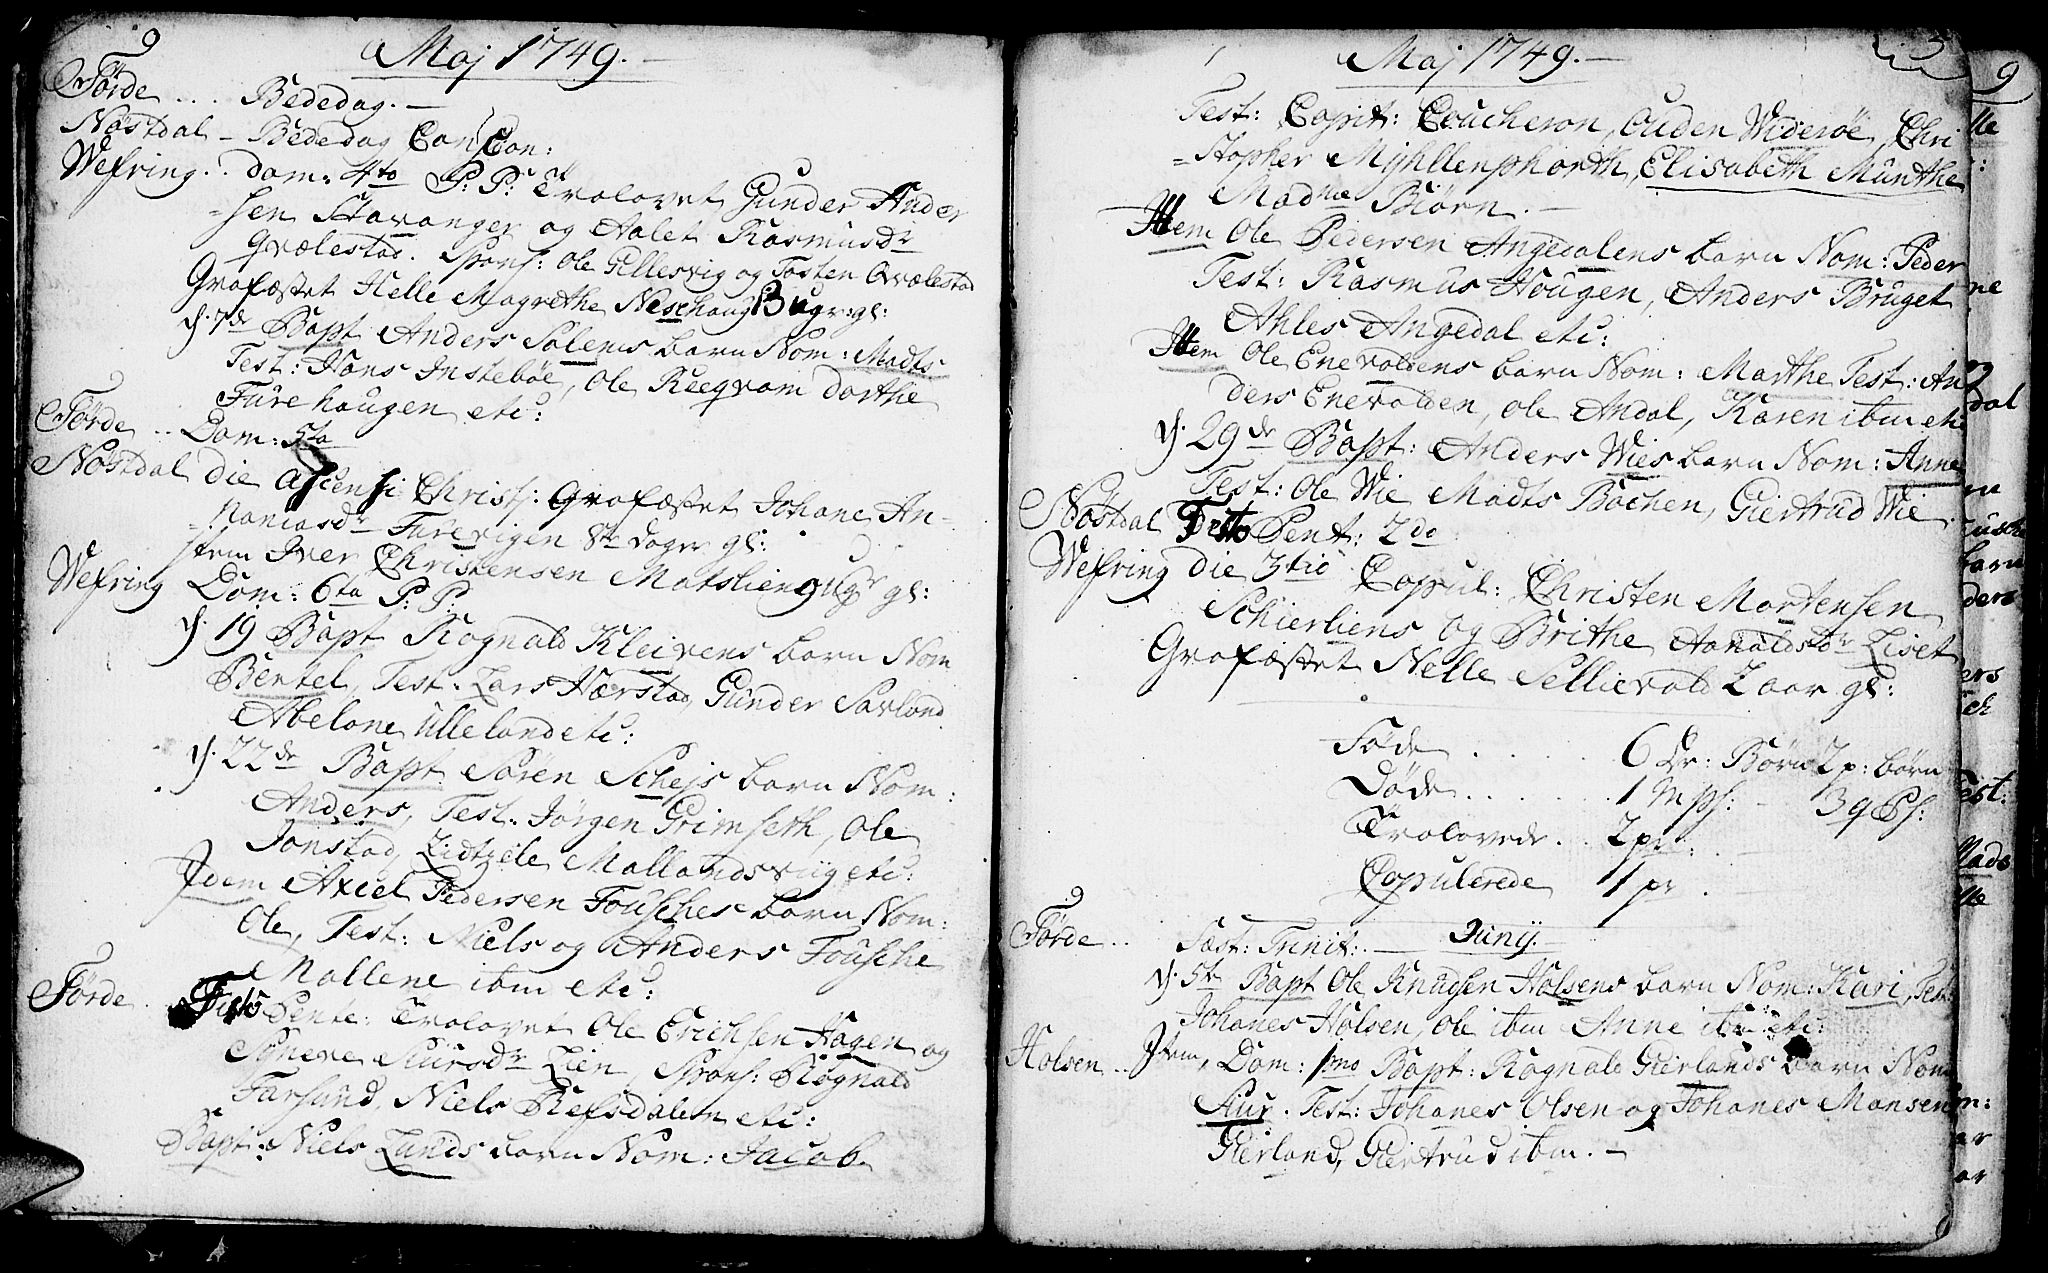 Maj 1749.
Förde ... Bededag.
Nöstdal - Bededag Con
Wefring .. dom: 4to P: P: Trolovet Gunder Ander
=sen Stavanger og Aalet Rasmusdr
Qvælestad. Spons: Ole Gillesvig og Tosten Qvælestad
Grafæstet Helle Magrethe Neschaug 3 ugr: gl:
d. 7de Bapt Anders Solems barn Nom: Madts
Test: Hans Instebøe, Ole Reeqvam dorthe
Furehaugen etc:
Förde .. Dom: 5ta
Nöstdal die Ascensi Christi: Grafæstet Johane An-
=naniasdr Furevigen 8te dager gl:
item Iver Christensen Matslien 9 ugr gl:
Wefring Dom: 6ta P: P:
d. 19 Bapt Rognald Kleivens barn Nom
Bentel, Test. Lars Hærstad, Gunder Savland
Abelone Ullelandetc:
d. 22de Bapt. Sören Schejs barn Nom:
Anders, Test. Jörgen Grimseth, Ole
Jonstad, Mallandsviig etc:
Idem Axcel Pedersen Fousches barn Nom:
Ole, Test: Niels og Anders Fousche
Mallene ibm etc:
Förde . Festo Pente: Trolovet Ole Erichsen Hagen og
Siursdr Lien, Spons: Rognald
Farsund, Niels Refsdalen etc:
Bapt: Niels Lunds barn Nom: Jacob.
Maj 1749.
Test: Capit: Coucheron, Ouden Widerøe, Chri
=stopher Mÿhllenphorth, Elisabeth Münthe
Madme Biørn.
Item Ole Pedersen Angedalens barn Nom: Peder
Test: Rasmus Hougen, Anders Bruget
Ahles Angedal etc:
Item Ole Enevoldens barn Nom: Marthe Test: An
ders Enevolden, Ole Andal, Karen ibm etc
d. 29de Bapt: Anders Wies barn Nom: Anne
Test: Ole Wie Madts Bachen, Giertrud Wie.
Nöstdal Festo Pent: 2do
Wefring die 3tio Copul: Christen Mortensen
Schierliens og Brithe Aanaldsdr Liset
Grafæstet Nelle Sellievold 2 aar gl:
Föde ..... 6 Dr: Börn 2 p: börn
Döde ...... 1 M ps: - 3 q Ps:
Trolovede .. 2 pr:
Copulerede 1 pr.
Junij.
Förde .. Fæst: Trinit:
d. 5te Bapt Ole Knudsen Holsens barn Nom: Kari, Test:
Johanes Holsen, Ole ibm Anne ibm etc:
Holsen .. Item, Dom: 1mo Bapt: Rognald Gierlands barn Nom
Siur. Test: Johanes Olsen og Johanes Monsen
Gierland, Giertrud ibm.